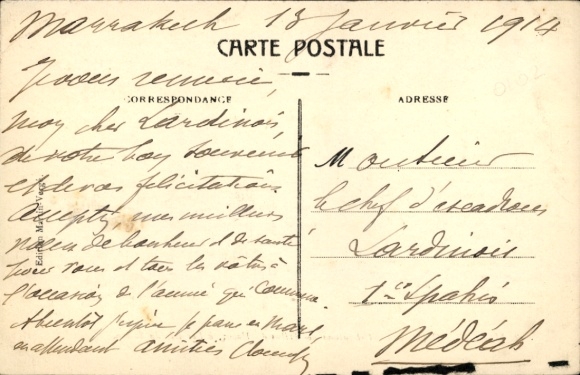 Marrakech 13 Janvier 1914
CARTE POSTALE
Je vous remercie,
CORRESPONDANCE
mon cher Lardinois,
de votre bon souvenir
et de vos félicitations
Acceptez mes meilleurs
voeux de bonheur et de santé
pour vous et tous les vôtres à
l'occasion de l'année qui commence
A bientôt j'espère, je pars en Mars,
en attendant amitiés
Edition
ADRESSE
Monsieur
le chef d'escadrons
Lardinois
1er Spahis
Médéah